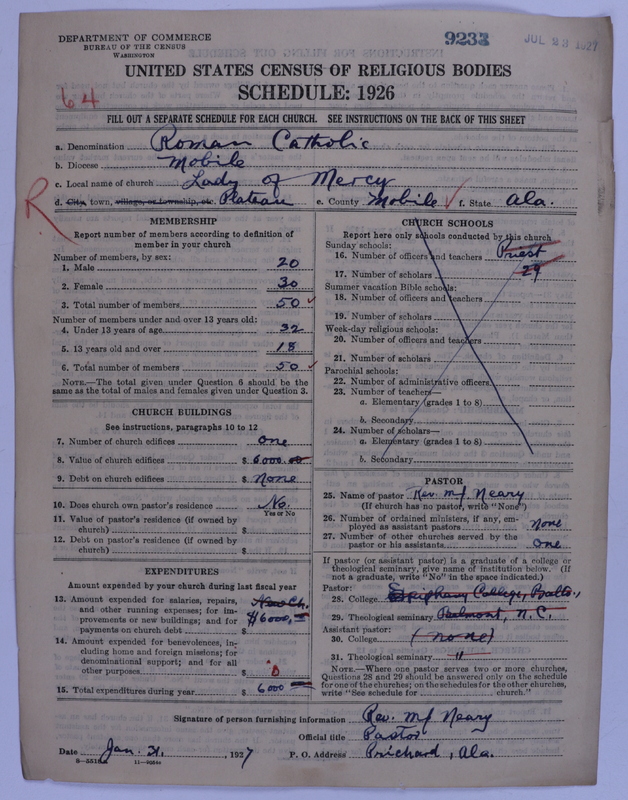 DEPARTMENT OF COMMERCE
BUREAU OF THE CENSUS
WASHINGTON
9233
JUL 23 1927
UNITED STATES CENSUS OF RELIGIOUS BODIES
SCHEDULE: 1926
64
FILL OUT A SEPARATE SCHEDULE FOR EACH CHURCH. SEE INSTRUCTIONS ON THE BACK OF THIS SHEET
a. Denomination Roman Catholic
b. Diocese Mobile
c. Local name of church Lady of Mercy
R
d. City, town, village, or township, etc. Plateau e. County Mobile ✓ f. State Ala.
MEMBERSHIP
Report number of members according to definition of
member in your church
Number of members, by sex:
1. Male 20
2. Female 30
3. Total number of members 50 ✓
Number of members under and over 13 years old:
4. Under 13 years of age 32
5. 13 years old and over 18
6. Total number of members 50 ✓
NOTE.—The total given under Question 6 should be the
same as the total of males and females given under Question 3.
CHURCH BUILDINGS
See instructions, paragraphs 10 to 12
7. Number of church edifices one
8. Value of church edifices $ 6000.00
9. Debt on church edifices $ None
10. Does church own pastor's residence No.
Yes or No
11. Value of pastor's residence (if owned by
church) $
12. Debt on pastor's residence (if owned by
church) $
EXPENDITURES
Amount expended by your church during last fiscal year
13. Amount expended for salaries, repairs,
and other running expenses; for im-
provements or new buildings; and for
payments on church debt New Ch. $6000.
14. Amount expended for benevolences, in-
cluding home and foreign missions; for
denominational support; and for all
other purposes $ 0
15. Total expenditures during year $ 6000
CHURCH SCHOOLS
Report here only schools conducted by this church
Sunday schools:
16. Number of officers and teachers Priest
17. Number of scholars 29
Summer vacation Bible schools:
18. Number of officers and teachers
19. Number of scholars
Week-day religious schools:
20. Number of officers and teachers
21. Number of scholars
Parochial schools:
22. Number of administrative officers
23. Number of teachers—
a. Elementary (grades 1 to 8)
b. Secondary
24. Number of scholars—
a. Elementary (grades 1 to 8)
b. Secondary
PASTOR
25. Name of pastor Rev. MJ. Neary
(If church has no pastor, write "None")
26. Number of ordained ministers, if any, em-
ployed as assistant pastors none
27. Number of other churches served by the
pastor or his assistants one
If pastor (or assistant pastor) is a graduate of a college or
theological seminary, give name of institution below. (If
not a graduate, write "No" in the space indicated.)
Pastor:
28. College Epiphany College, Balto.,
29. Theological seminary Belmont, N.C.
Assistant pastor:
30. College (none)
31. Theological seminary "
NOTE.—Where one pastor serves two or more churches,
Questions 28 and 29 should be answered only on the schedule
for one of the churches; on the schedules for the other churches,
write "See schedule for church."
Signature of person furnishing information Rev. MJ Neary
Official title Pastor
Date Jan. 31, 1927 P. O. Address Prichard, Ala.